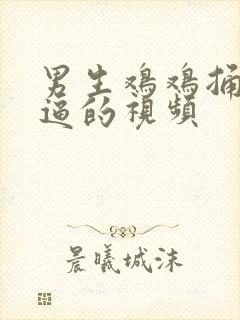 男生鷄鷄捅
逼的視頻
晨曦城沫